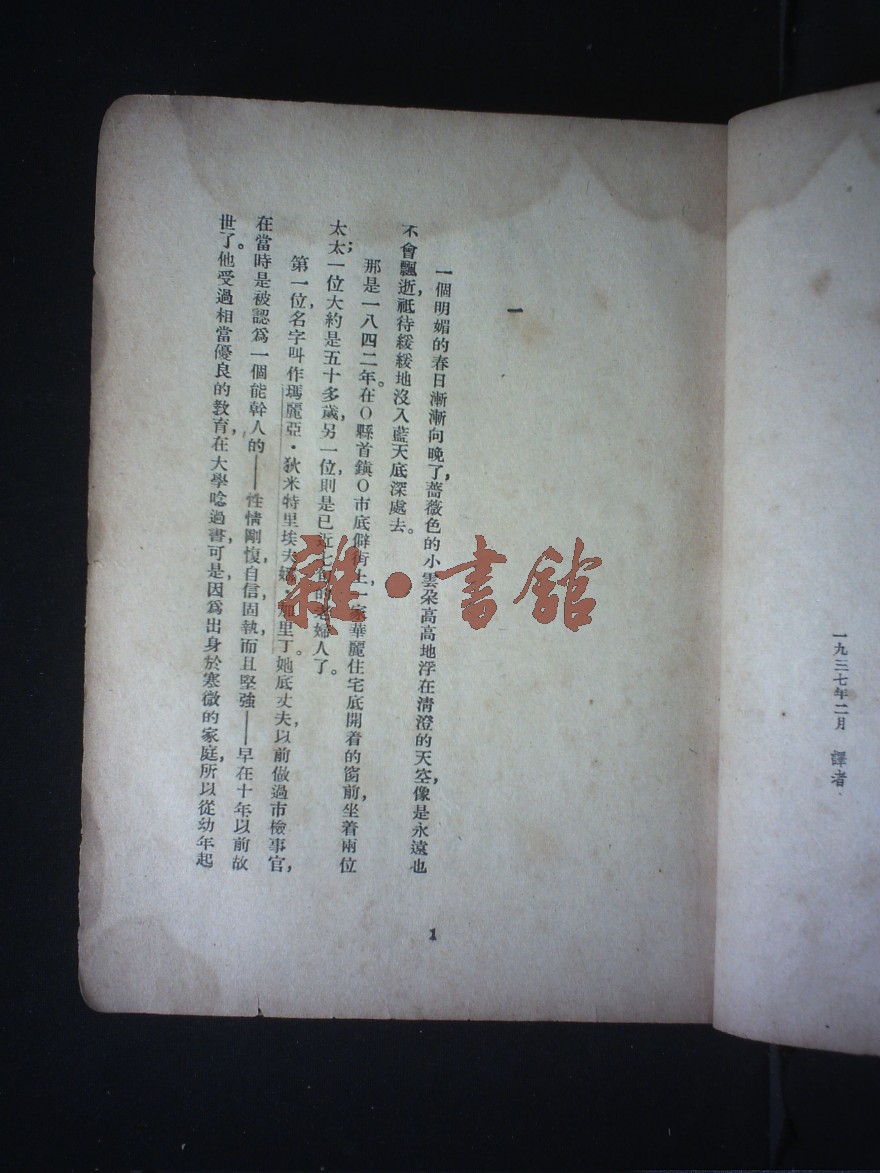 一九三七年二月 譯者
一
一個明媚的春日漸漸向晚了,薔薇色的小雲朵高高地浮在清澄的天空,像是永遠也
不會飄逝,祇待緩緩地沒入藍天底深處去。
那是一八四二年。在O縣首鎮O市底僻街上,一家華麗住宅底開着的窗前,坐着兩位
太太;一位大約是五十多歲,另一位,則是已近七旬的老婦人了。
第一位,名字叫作瑪麗亞·狄米特里埃夫娜·加里丁。她底丈夫,以前做過市檢事官,
在當時是被認爲一個能幹人的——性情剛愎,自信,固執,而且堅強——早在十年以前故
世了。他受過相當優良的教育,在大學唸過書,可是,因爲出身於寒微的家庭,所以從幼年起
1
雜·書館